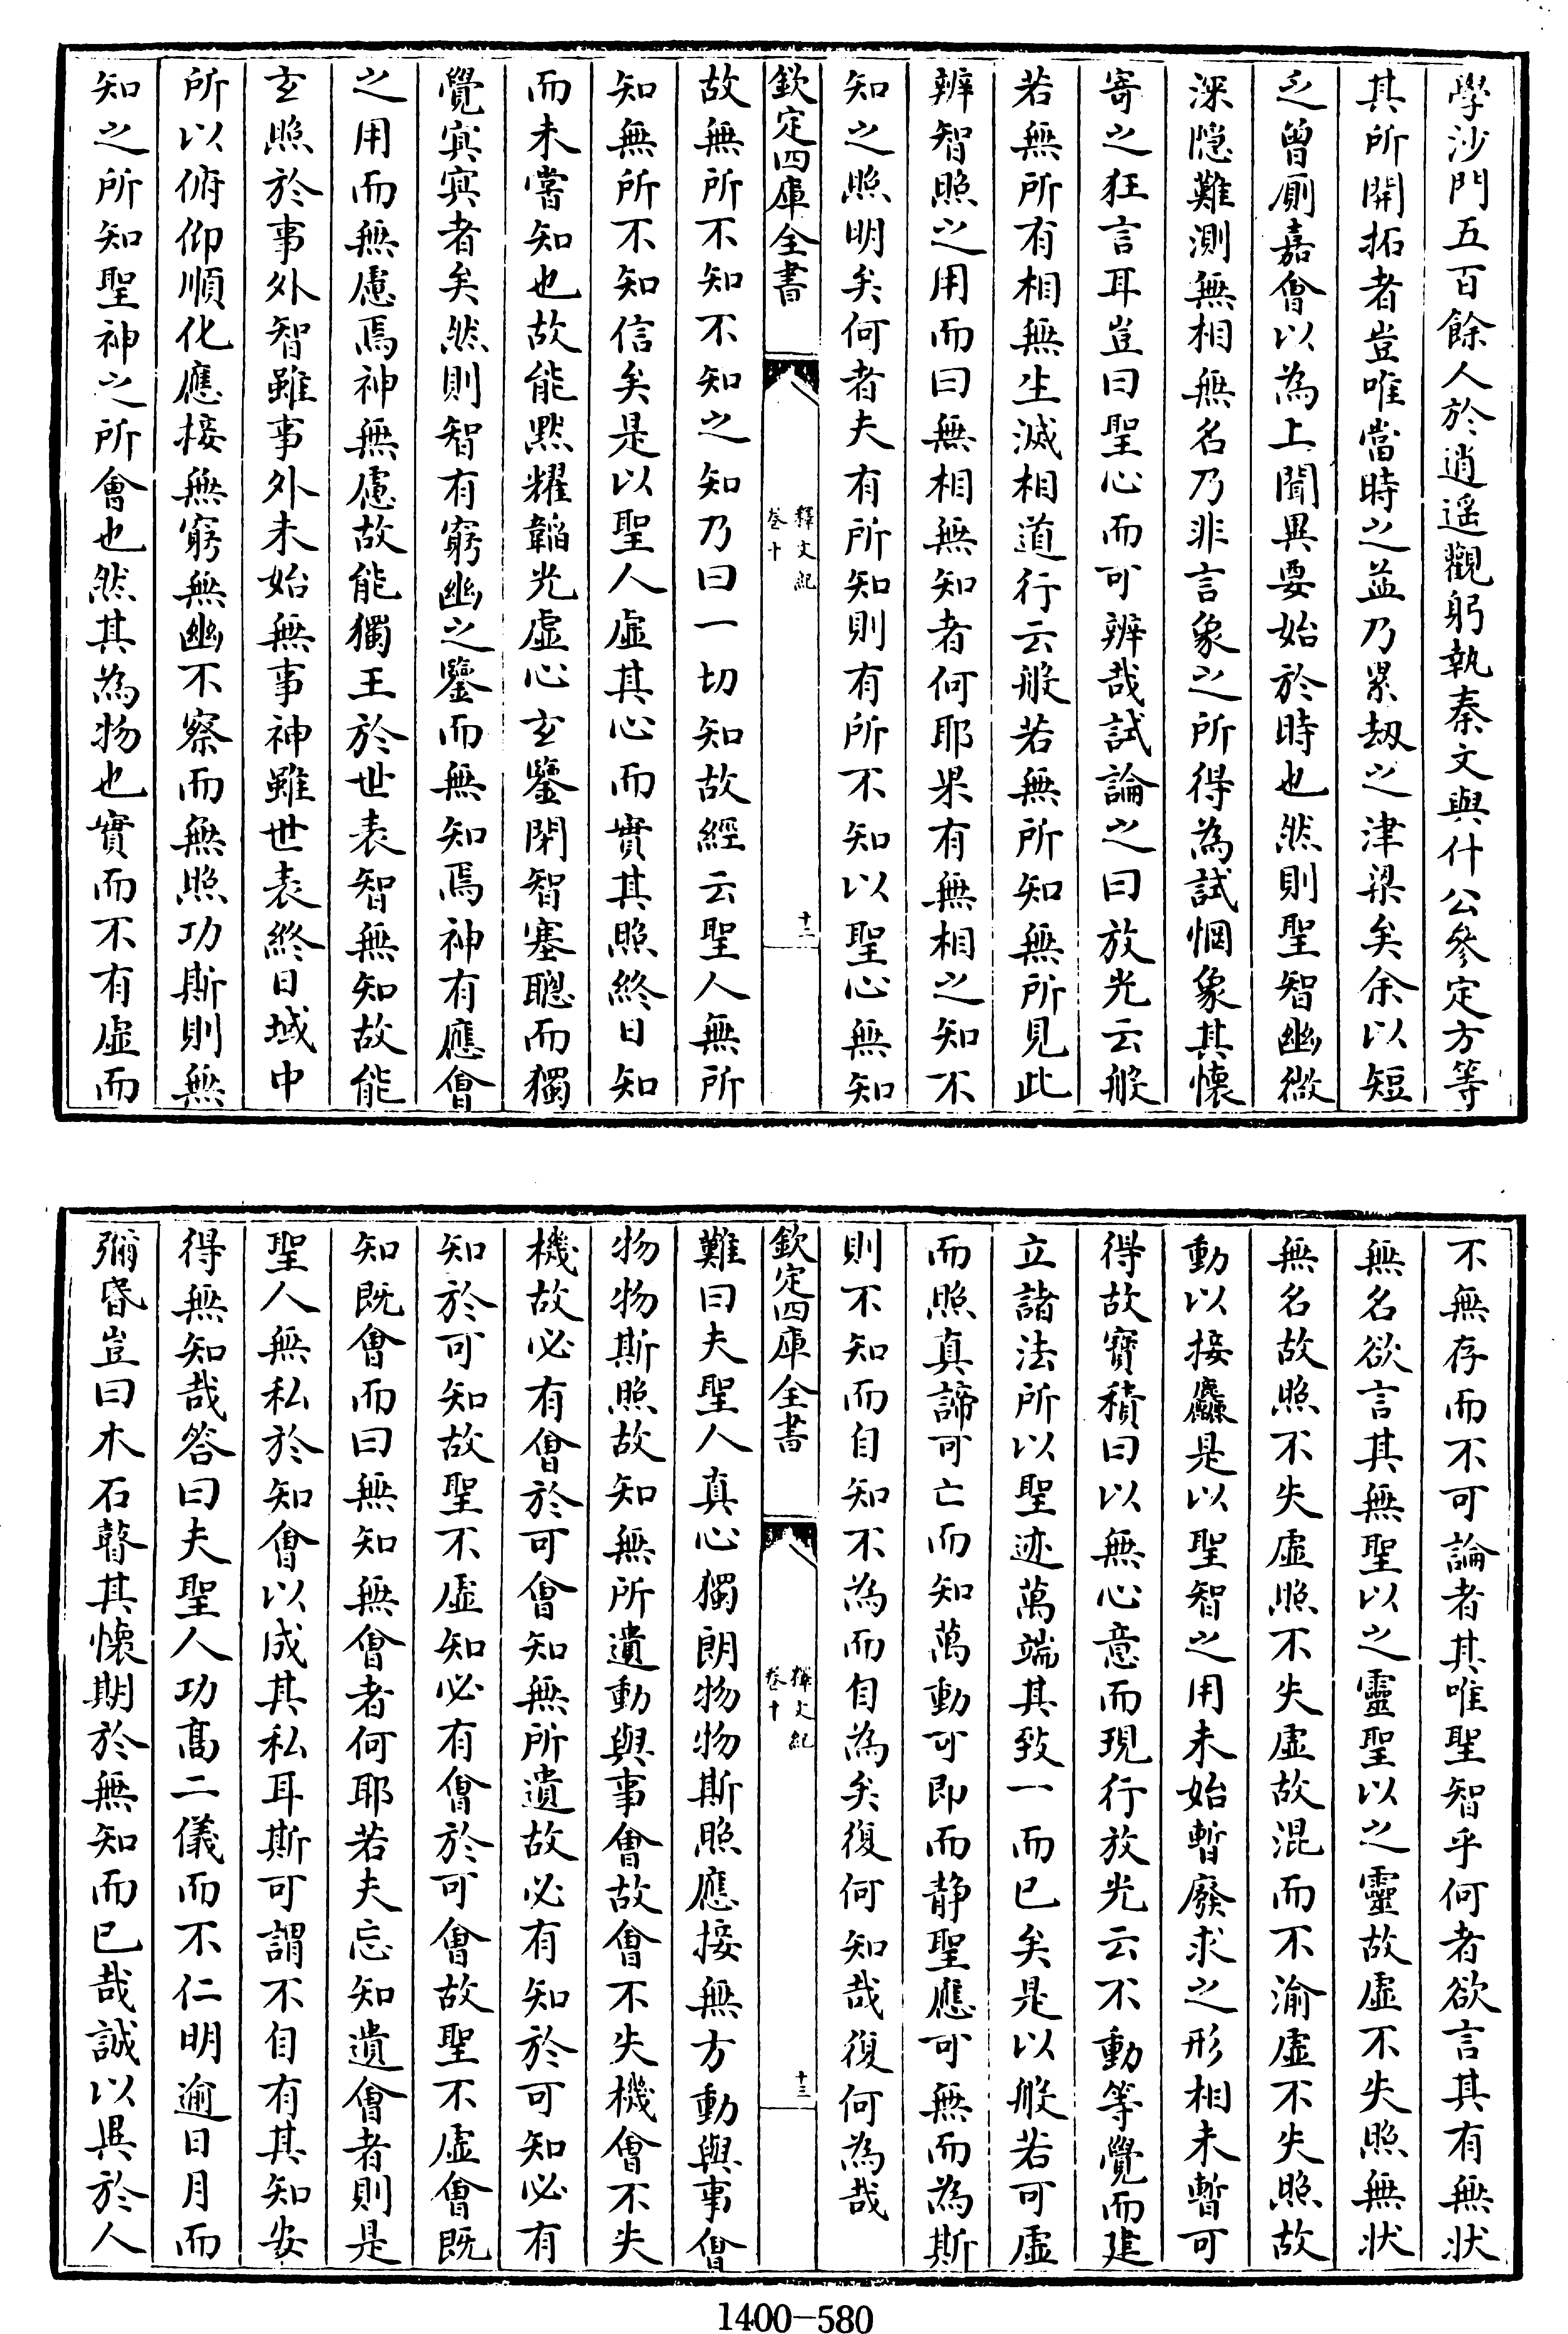 學沙門五百餘人於逍遥觀躬執秦文與什公參定方等
其所開拓者豈唯當時之益乃累劫之津梁矣余以短
乏曾厠嘉會以為上聞異要始於時也然則聖智幽微
深隠難測無相無名乃非言象之所得為試惘象其懷
寄之狂言耳豈曰聖心而可辨哉試論之曰放光云般
若無所有相無生滅相道行云般若無所知無所見此
辨智照之用而曰無相無知者何耶果有無相之知不
知之照明矣何者夫有所知則有所不知以聖心無知
欽定四庫全書
釋文紀
卷十
十二
故無所不知不知之知乃曰一切知故經云聖人無所
知無所不知信矣是以聖人虛其心而實其照終日知
而未嘗知也故能黙耀韜光虛心玄鑒閉智塞聰而獨
覺冥冥者矣然則智有窮幽之鑒而無知焉神有應會
之用而無慮焉神無慮故能獨王於世表智無知故能
玄照於事外智雖事外未始無事神雖世表終日域中
所以俯仰順化應接無窮無幽不察而無照功斯則無
知之所知聖神之所會也然其為物也實而不有虛而
不無存而不可論者其唯聖智乎何者欲言其有無狀
無名欲言其無聖以之靈聖以之靈故虛不失照無狀
無名故照不失虛照不失虛故混而不渝虛不失照故
動以接麤是以聖智之用未始暫廢求之形相未暫可
得故寶積曰以無心意而現行放光云不動等覺而建
立諸法所以聖迹萬端其致一而已矣是以般若可虛
而照真諦可亡而知萬動可即而静聖應可無而為斯
則不知而自知不為而自為矣復何知哉復何為哉
欽定四庫全書
釋文紀
卷十
十三
難曰夫聖人真心獨朗物物斯照應接無方動與事會
物物斯照故知無所遺動與事會故會不失機會不失
機故必有會於可會知無所遺故必有知於可知必有
知於可知故聖不虛知必有會於可會故聖不虛會既
知既會而曰無知無會者何耶若夫忘知遺會者則是
聖人無私於知會以成其私耳斯可謂不自有其知安
得無知哉答曰夫聖人功髙二儀而不仁明逾日月而
彌昏豈曰木石瞽其懷期於無知而已哉誠以異於人
1400-580